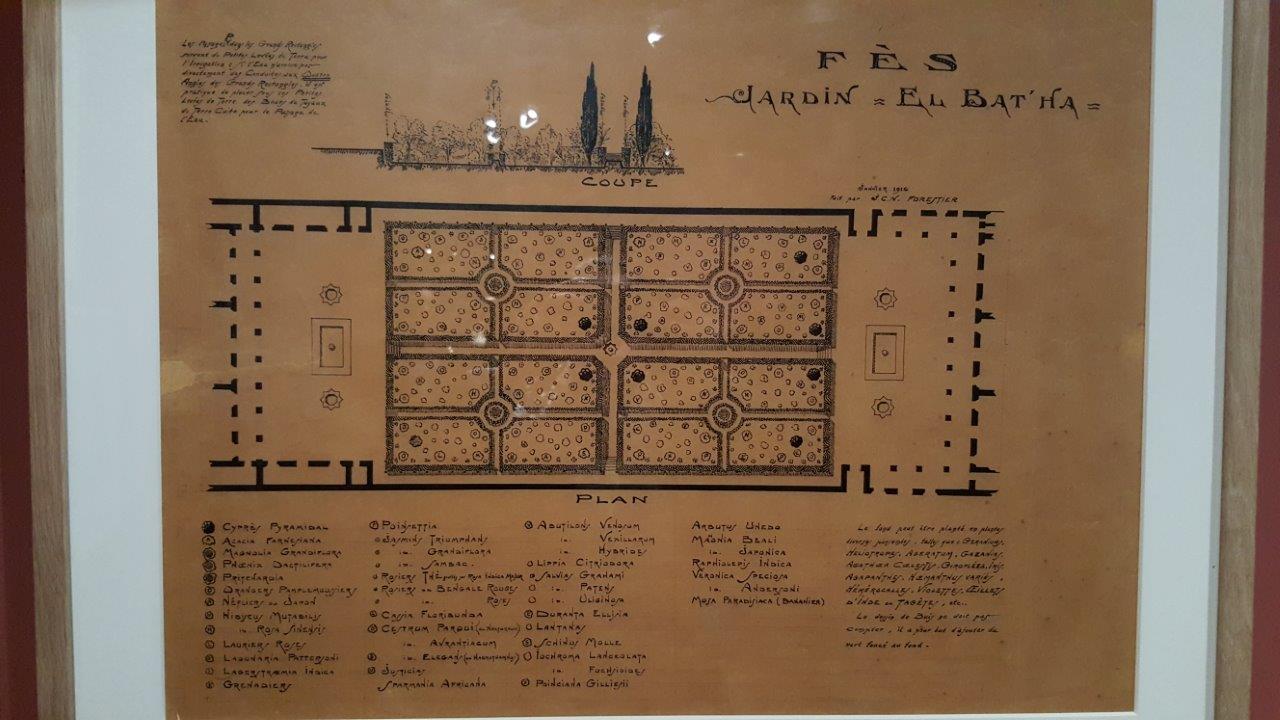 Les Passages dans les Grands Rectangles
servent de Petites Levées de Terre pour
l'Irrigation : Si l'Eau n'arrive pas
directement des Conduites aux Quatre
Angles des Grands Rectangles, il est
pratique de placer sous ces Petites
Levées de Terre des Bouts de Tuyaux
de Terre Cuite pour le Passage de
l'Eau.
FÈS
JARDIN = EL BAT'HA =
COUPE
Janvier 1916
Fait par J.C.N. FORESTIER
PLAN
CYPRÈS PYRAMIDAL
ACACIA FARNESIANA
MAGNOLIA GRANDIFLORA
PHŒNIX DACTILIFERA
PRITCHARDIA
ORANGERS PAMPLEMOUSSIERS
NÉFLIERS DU JAPON
HIBISCUS MUTABILIS
id. ROSA SINENSIS
LAURIERS ROSES
LAGUNARIA PATTERSONI
LAGERSTRŒMIA INDICA
GRENADIERS
POINSETTIA
JASMINS TRIUMPHANS
id. GRANDIFLORA
id. SAMBAC
ROSIERS THÉ greffés sur Rosa Indica Major
ROSIERS DU BENGALE ROUGES
id. ROSES
CASSIA FLORIBUNDA
CESTRUM PARQUI
id. AURANTIACUM
id. ELEGANS
JUSTICIAS
SPARMANIA AFRICANA
ABUTILONS VENOSUM
id. VEXILLARUM
id. HYBRIDES
LIPPIA CITRIODORA
SALVIAS GRAHAMI
id. PATENS
id. ULIGINOSA
DURANTA ELLISIA
LANTANAS
SCHINUS MOLLE
IOCHROMA LANCEOLATA
id. FUCHSIOIDES
POINCIANA GILLIESII
ARBUTUS UNEDO
MAONIA BEALI
id. JAPONICA
RAPHIOLEPIS INDICA
VERONICA SPECIOSA
id. ANDERSONI
MUSA PARADISIACA (BANANIER)
Le fond peut être planté en plantes
diverses suivantes, telles que : GERANIUMS,
HELIOTROPES, AGERATUM, GAZANIAS,
AGATHŒA CŒLESTIS, GIROFLÉES, IRIS,
AGAPANTHES, HÆMANTHUS VARIÉS,
HÉMÉROCALLES, VIOLETTES, ŒILLETS
D'INDE ou TAGÈTES, etc..
Le dessin de Buis ne doit pas
compter, il a pour but d'ajouter du
vert foncé au fond.